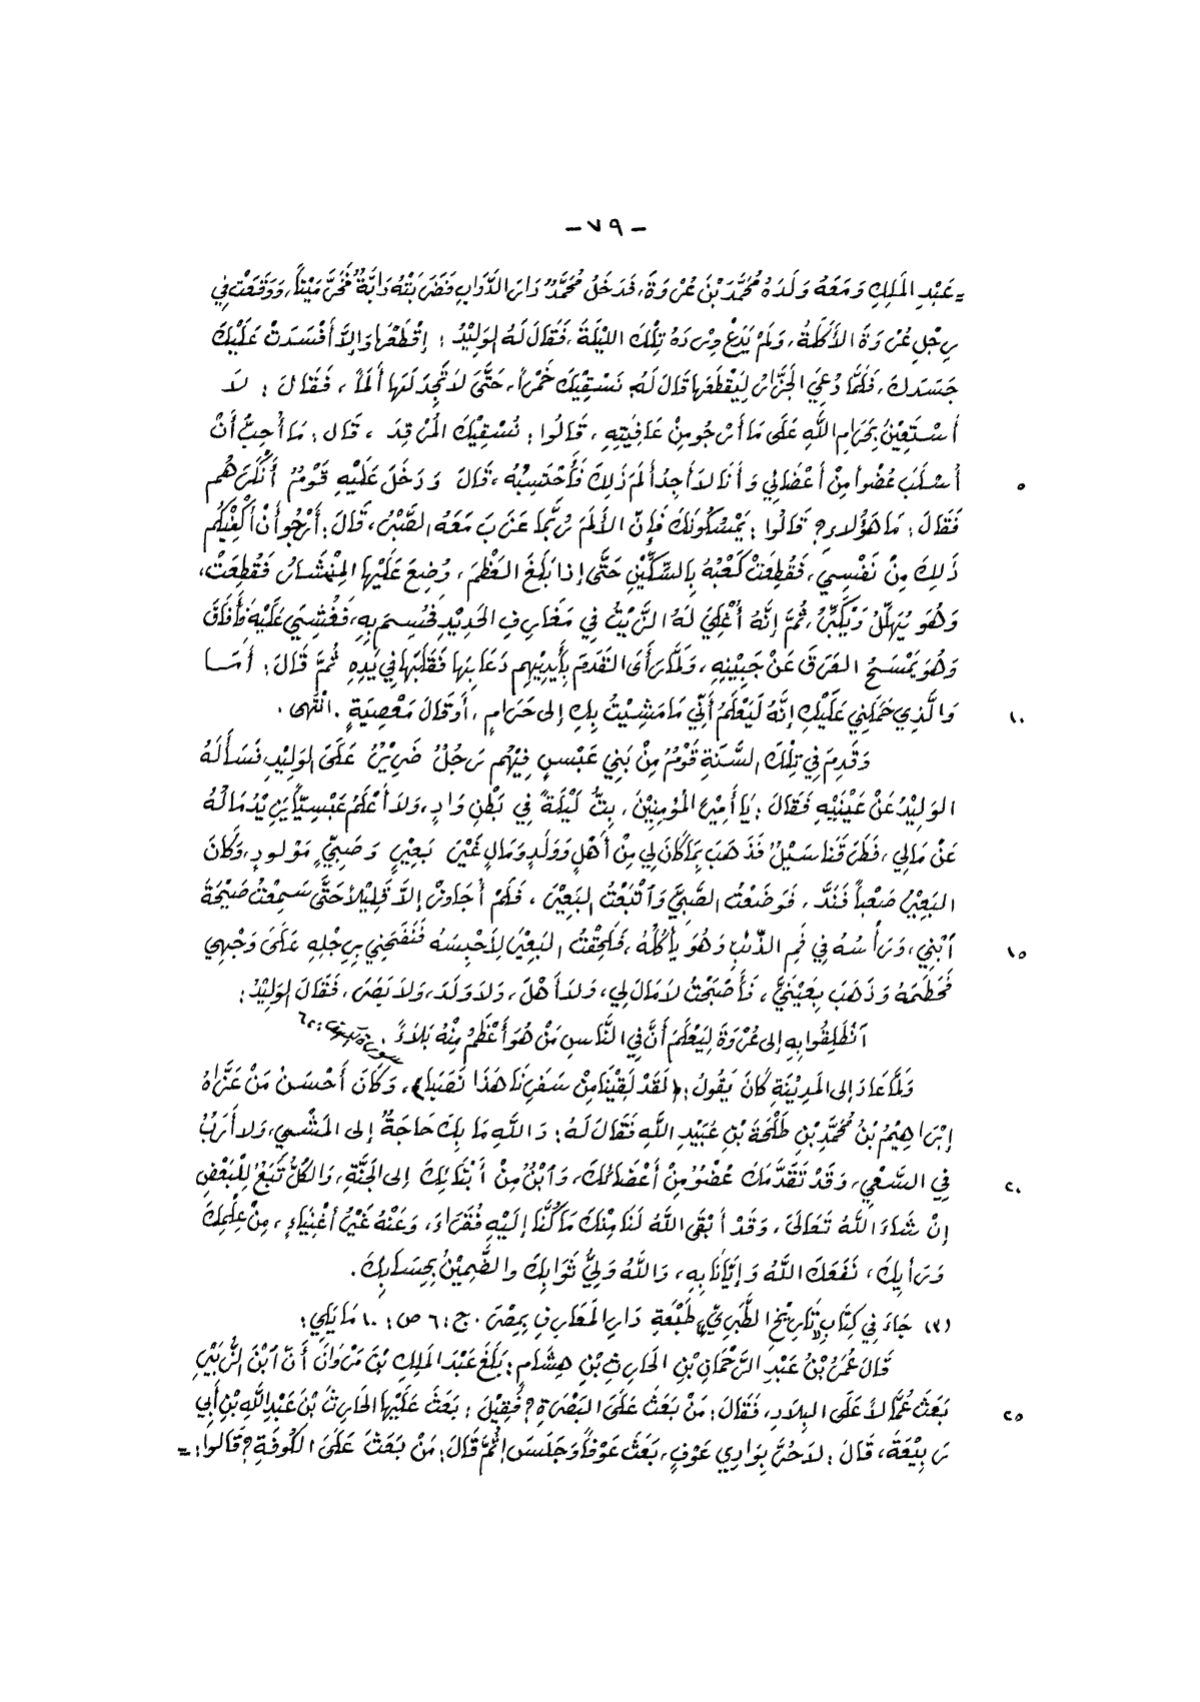 - ٧٩ -
= عَبْدِ المَلِكِ وَمَعَهُ وَلَدُهُ مُحَمَّدُ بْنُ عُرْوَةَ، فَدَخَلَ مُحَمَّدٌ دَارَ الدَّوَابِ فَضَرَبَتْهُ دَابَّةٌ فَخَرَّ مَيْتاً، وَوَقَعَتْ فِي
رِجْلِ عُرْوَةَ الأَكَلَةُ، وَلَمْ يَدَعْ وِرْدَهُ تِلْكَ اللَّيْلَةَ، فَقَالَ لَهُ الوَلِيْدُ: إِقْطَعْهَا وَإِلاَّ أَفْسَدَتْ عَلَيْكَ
جَسَدَكَ، فَلَمَّا دُعِيَ الجَزَّارُ لِيَقْطَعَهَا قَالَ لَهُ: نَسْقِيْكَ خَمْراً، حَتَّى لاَ تَجِدَ لَهَا أَلَماً، فَقَالَ: لاَ
أَسْتَعِيْنُ بِحَرَامِ اللَّهِ عَلَى مَا أَرْجُو مِنْ عَافِيَتِهِ، قَالُوا: نُسْقِيْكَ المُرْقِدَ، قَالَ: مَا أُحِبُّ أَنْ
أُسْلَبَ عُضْواً مِنْ أَعْضَائِي وَأَنَا لاَ أَجِدُ أَلَمَ ذَلِكَ فَأَحْتَسِبُهُ، قَالَ وَدَخَلَ عَلَيْهِ قَوْمٌ أَنْكَرَهُم ٥
فَقَالَ: مَا هَؤُلاَءِ؟ قَالُوا: يُمْسِكُونَكَ فَإِنَّ الأَلَمَ رُبَّمَا عَزَبَ مَعَهُ الصَّبْرُ، قَالَ: أَرْجُو أَنْ أَكْفِيْكُم
ذَلِكَ مِنْ نَفْسِي، فَقُطِعَتْ كَعْبُهُ بِالسِّكِّيْنِ حَتَّى إِذَا بَلَغَ العَظْمَ، وُضِعَ عَلَيْهَا المِنْشَارُ فَقُطِعَتْ،
وَهُوَ يُهَلِّلُ وَيُكَبِّرُ، ثُمَّ إِنَّهُ أُغْلِيَ لَهُ الزَّيْتُ فِي مَغَارِفِ الحَدِيْدِ فَحُسِمَ بِهِ، فَغُشِيَ عَلَيْهِ فَأَفَاقَ
وَهُوَ يَمْسَحُ العَرَقَ عَنْ جَبِيْنِهِ، وَلَمَّا رَأَى القَدَمَ بِأَيْدِيْهِم دَعَا بِهَا فَقَلَّبَهَا فِي يَدِهِ ثُمَّ قَالَ: أَمَا
وَالَّذِي حَمَلَنِي عَلَيْكِ إِنَّهُ لَيَعْلَمُ أَنِّي مَا مَشِيْتُ بِكِ إِلى حَرَامٍ، أَوقَالَ مَعْصِيَةٍ. انْتَهى. ١٠
وَقَدِمَ فِي تِلْكَ السَّنَةِ قَوْمٌ مِنْ بَنِي عَبْسٍ فِيْهُم رَجُلٌ ضَرِيْرٌ عَلَى الوَلِيْدِ، فَسَأَلَهُ
الوَلِيْدُ عَنْ عَيْنَيْهِ فَقَالَ: يَا أَمِيْرَ المُؤْمِنِيْنَ، بِتُّ لَيْلَةً فِي بَطْنِ وَادٍ، وَلاَ أَعْلَمُ عَبْسِيّاً يَزِيْدُ مَالُهُ
عَنْ مَالِي، فَطَرَقَنَا سَيْلٌ فَذَهَبَ بِمَا كَانَ لِي مِنْ أَهْلٍ وَوَلَدٍ وَمَالٍ غَيْرَ بَعِيْرٍ وَصَبِيٍّ مَوْلُودٍ، وَكَانَ
البَعِيْرُ صَعْباً فَنَدَّ، فَوَضَعْتُ الصَّبِيَّ وَاتْبَعْتُ البَعِيْرَ، فَلَمْ أُجَاوِزْ إِلاَّ قَلِيْلاً حَتَّى سَمِعْتُ صَيْحَةَ
ابْنِي، وَرَأْسُهُ فِي فَمِ الذِّئْبِ وَهُوَ يَأْكُلُهُ، فَلَحِقْتُ البَعِيْرَ لِأَحْبِسَهُ فَنَفَحَنِي بِرِجْلِهِ عَلَى وَجْهِي ١٥
فَحَطَمَهُ وَذَهَبَ بِعَيْنَيَّ، فَأَصْبَحْتُ لاَ مَالَ لِي، وَلاَ أَهْلَ، وَلاَ وَلَدَ، وَلاَ بَصَرَ، فَقَالَ الوَلِيْدُ:
انْطَلِقُوا بِهِ إِلى عُرْوَةَ لِيَعْلَمَ أَنَّ فِي النَّاسِ مَنْ هُوَ أَعْظَمُ مِنْهُ بَلاَءً.
وَلَمَّا عَادَ إِلى المَدِيْنَةِ كَانَ يَقُولُ: ﴿لَقَدْ لَقِيْنَا مِنْ سَفَرِنَا هَذَا نَصَبَا﴾، وَكَانَ أَحْسَنُ مَنْ عَزَّاهُ
إِبْرَاهِيْمُ بْنُ مُحَمَّدِ بْنِ طَلْحَةَ بْنِ عُبَيْدِ اللَّهِ فَقَالَ لَهُ: وَاللَّهِ مَا بِكَ حَاجَةٌ إِلى المَشْيِ، وَلاَ أَرَبٌ
فِي السَّعْيِ، وَقَدْ تَقَدَّمَكَ عُضْوٌ مِنْ أَعْضَائِكَ، وَابْنٌ مِنْ أَبْنَائِكَ إِلى الجَنَّةِ، وَالكُلُّ تَبَعٌ لِلْبَعْضِ ٢٠
إِنْ شَاءَ اللَّهُ تَعَالَى، وَقَدْ أَبْقَى اللَّهُ لَنَا مِنْكَ مَا كُنَّا إِلَيْهِ فُقَرَاءَ، وَعَنْهُ غَيْرُ أَغْنِيَاءٍ، مِنْ عِلْمِكَ
وَرَأْيِكَ، نَفَعَكَ اللَّهُ وَإِيَّانَا بِهِ، وَاللَّهُ وَلِيُّ ثَوَابِكَ وَالضَّمِيْنُ بِحِسَابِكَ.
جَاءَ فِي كِتَابِ تَارِيْخِ الطَّبَرِيِّ طَبْعَةِ دَارِ المَعَارِفِ بِمِصْرَ. ج: ٦ ص: ١٠ مَا يَلِي:
قَالَ عُمَرُ بْنُ عَبْدِ الرَّحْمَانِ بْنِ الحَارِثِ بْنِ هِشَامٍ: بَلَغَ عَبْدَ المَلِكِ بْنَ مَرْوَانَ أَنَّ ابْنَ الزُّبَيْرِ
بَعَثَ عُمَّالاً عَلَى البِلاَدِ، فَقَالَ: مَنْ بَعَثَ عَلَى البَصْرَةِ؟ فَقِيْلَ: بَعَثَ عَلَيْهَا الحَارِثَ بْنَ عَبْدِ اللَّهِ بْنِ أَبِي ٢٥
رَبِيْعَةَ، قَالَ: لاَ حُرَّ بِوَادِي عَوْفٍ، بَعَثَ عَوْفاً وَجَلَسَ! ثُمَّ قَالَ: مَنْ بَعَثَ عَلَى الكُوفَةِ؟ قَالُوا: =